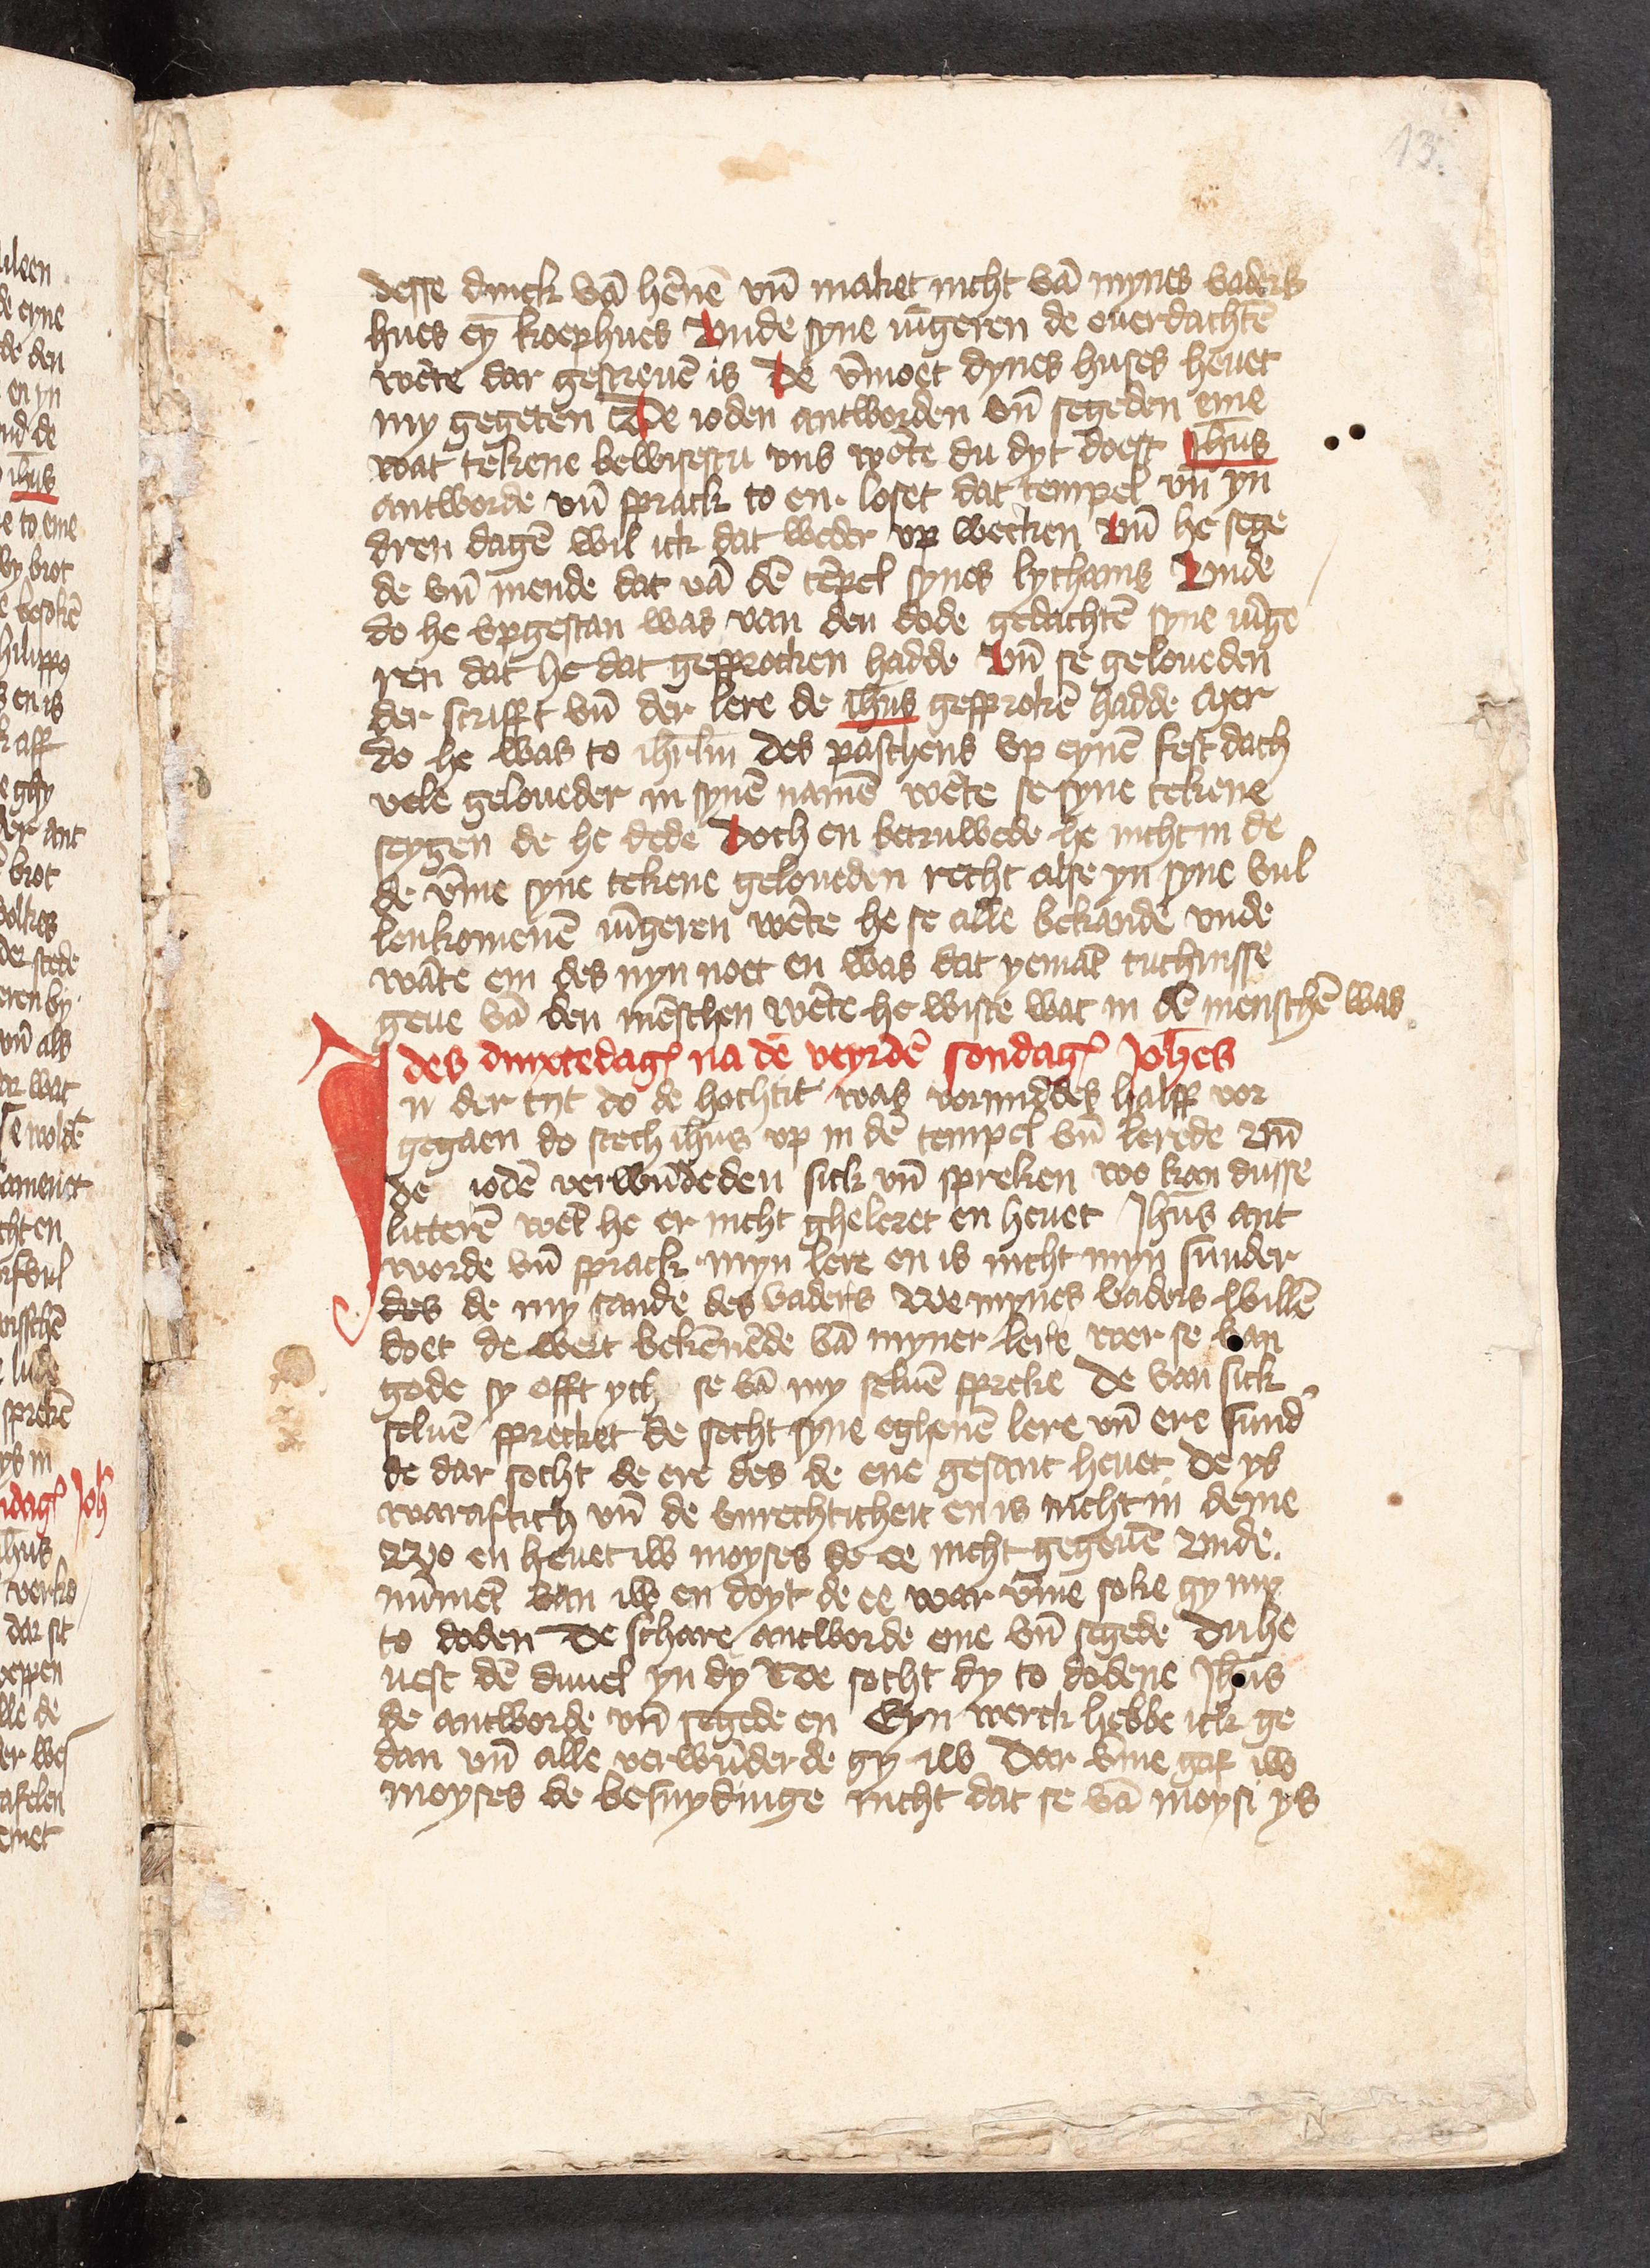 13.
desse dinck vā hēnē vn̄ maket nicht vā mynes vaders
hues eȳ koephues Vnde syne iūgeren de ouerdachtē
wēte dar gescreuē is De v̄moet dynes huses heuet
my gegeten De ioden antworden vn̄ segeden eme
wat tekene bewisestu vns wēte du dyt doest Ihūs
antworde vn̄ sprack to en. loset dat tempel vn̄ yn
dren dagē wil ick dat weder vp wecken Vn̄ he sege
de vn̄ mende dat vā dē tēpel synes lychams Vnde
do he vpgestan was van den dode gedachtē syne iūge
ren dat he dat gesprocken hadde Vn̄ se geloueden
der scrifft vn̄ der lere de ihūs gesprokē hadde Mer
do he was to ihrl̄m des paschens vp eynē fest dach
vele geloueder in synē namē wēte se syne tekene
seygen de he dede Doch en betruwede he nicht in de
de v̄me syne tekene geloueden recht alse yn syne vul
lenkomenē iūgeren wēte he se alle bekande vnde
wāte em des nyn noet en was dat yemāt tuchnisse
geue vā den mēschen wēte he wiste wat in dē menschē was
des dinxtedagʒ na dē veyrdē sondagʒ Joh̄es
In der tyt do de hochtit was vormiddes halff vor
gegaen do stech ihūs vp in dē tempel vn̄ lerede Vn̄
de iodē verwūdeden sick vn̄ spreken wo kan dusse
litterē wēt he er nicht gheleret en heuet Jhūs ant
worde vn̄ sprack myn lere en is nicht myn sunder
des de my sande des vaders We mynes vaders willē
doet de wert bekēnēde vā myner lere wer se van
gode sy offt ych se vā my seluē spreke De van sick
seluē sprecket de socht syne eghenē lere vn̄ ere sund'
de dar socht de ere des de ene gesant heuet De ys
warafftich vn̄ de vnrechticheit en is nicht in deme
Wo en heuet iw moyses de ee nicht gegeuē Vnde
nūmēt van iw en doyt de ee war v̄me soke gy my
to doden De schare antworde eme vn̄ segede Du he
uest dē duuel yn dy We socht dy to dodene Jhūs
de antworde vn̄ segede en Eyn werck hebbe ick ge
dan vn̄ alle verwūderde gy iw Dar v̄me gaf iw
moyses de besnydinge nicht dat se vā moysi ys